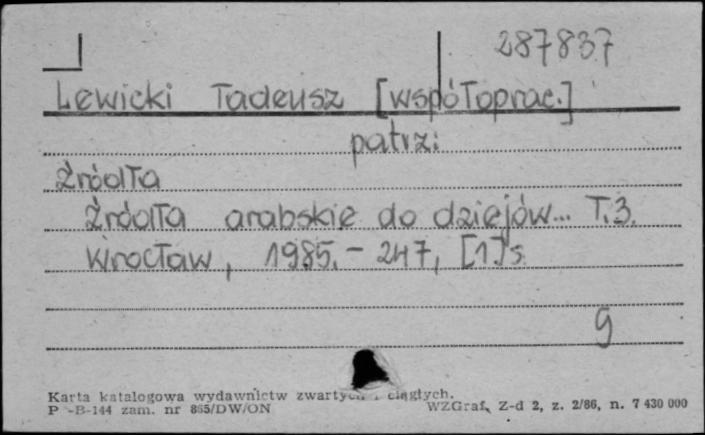 287837
Lewicki Tadeusz [współoprac.]
patrz:
Źródła
Źródła arabskie do dziejów... T.3.
Wrocław, 1985. - 247, [1] s.
g
Karta katalogowa wydawnictw zwartych i ciągłych.
P -B-144 zam. nr 865/DW/ON
WZGraf. Z-d 2, z. 2/86, n. 7 430 000